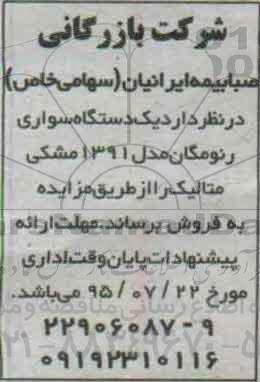 شرکت بازرگانی
صبابیمه ایرانیان (سهامی خاص)
در نظر دارد یک دستگاه سواری
رنومگان مدل ۱۳۹۱ مشکی
متالیک را از طریق مزایده
به فروش برساند. مهلت ارائه
پیشنهادات پایان وقت اداری
مورخ ۹۵/۰۷/۲۲ می‌باشد.
۲۲۹۰۶۰۸۷-۹
۰۹۱۹۲۳۱۰۱۱۶